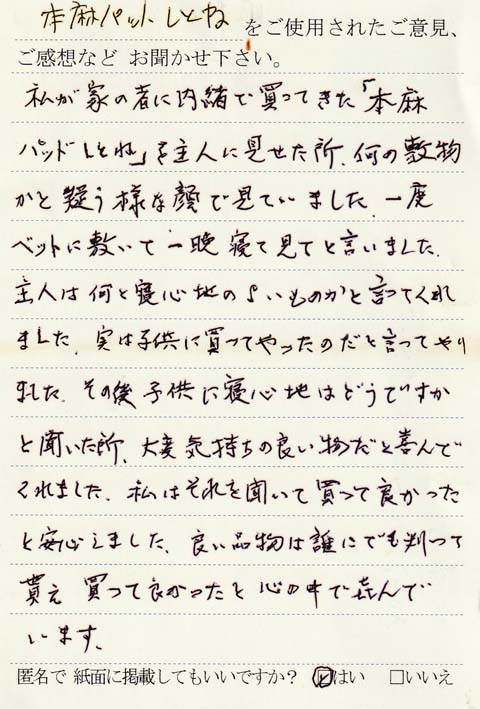 本麻パット しとね をご使用されたご意見、
ご感想など お聞かせ下さい。
私が家の者に内緒で買ってきた「本麻
パッドしとね」を主人に見せた所、何の敷物
かと疑う様な顔で見ていました。一度
ベットに敷いて一晩寝て見てと言いました。
主人は何と寝心地のよいものかと言ってくれ
ました。実は子供に買ってやったのだと言ってやり
ました。その後子供に寝心地はどうですか
と聞いた所、大変気持ちの良い物だと喜んで
くれました。私はそれを聞いて買って良かった
と安心しました。良い品物は誰にでも判って
貰え 買って良かったと心の中で喜んで
います。
匿名で 紙面に掲載してもいいですか？ ☑はい □いいえ